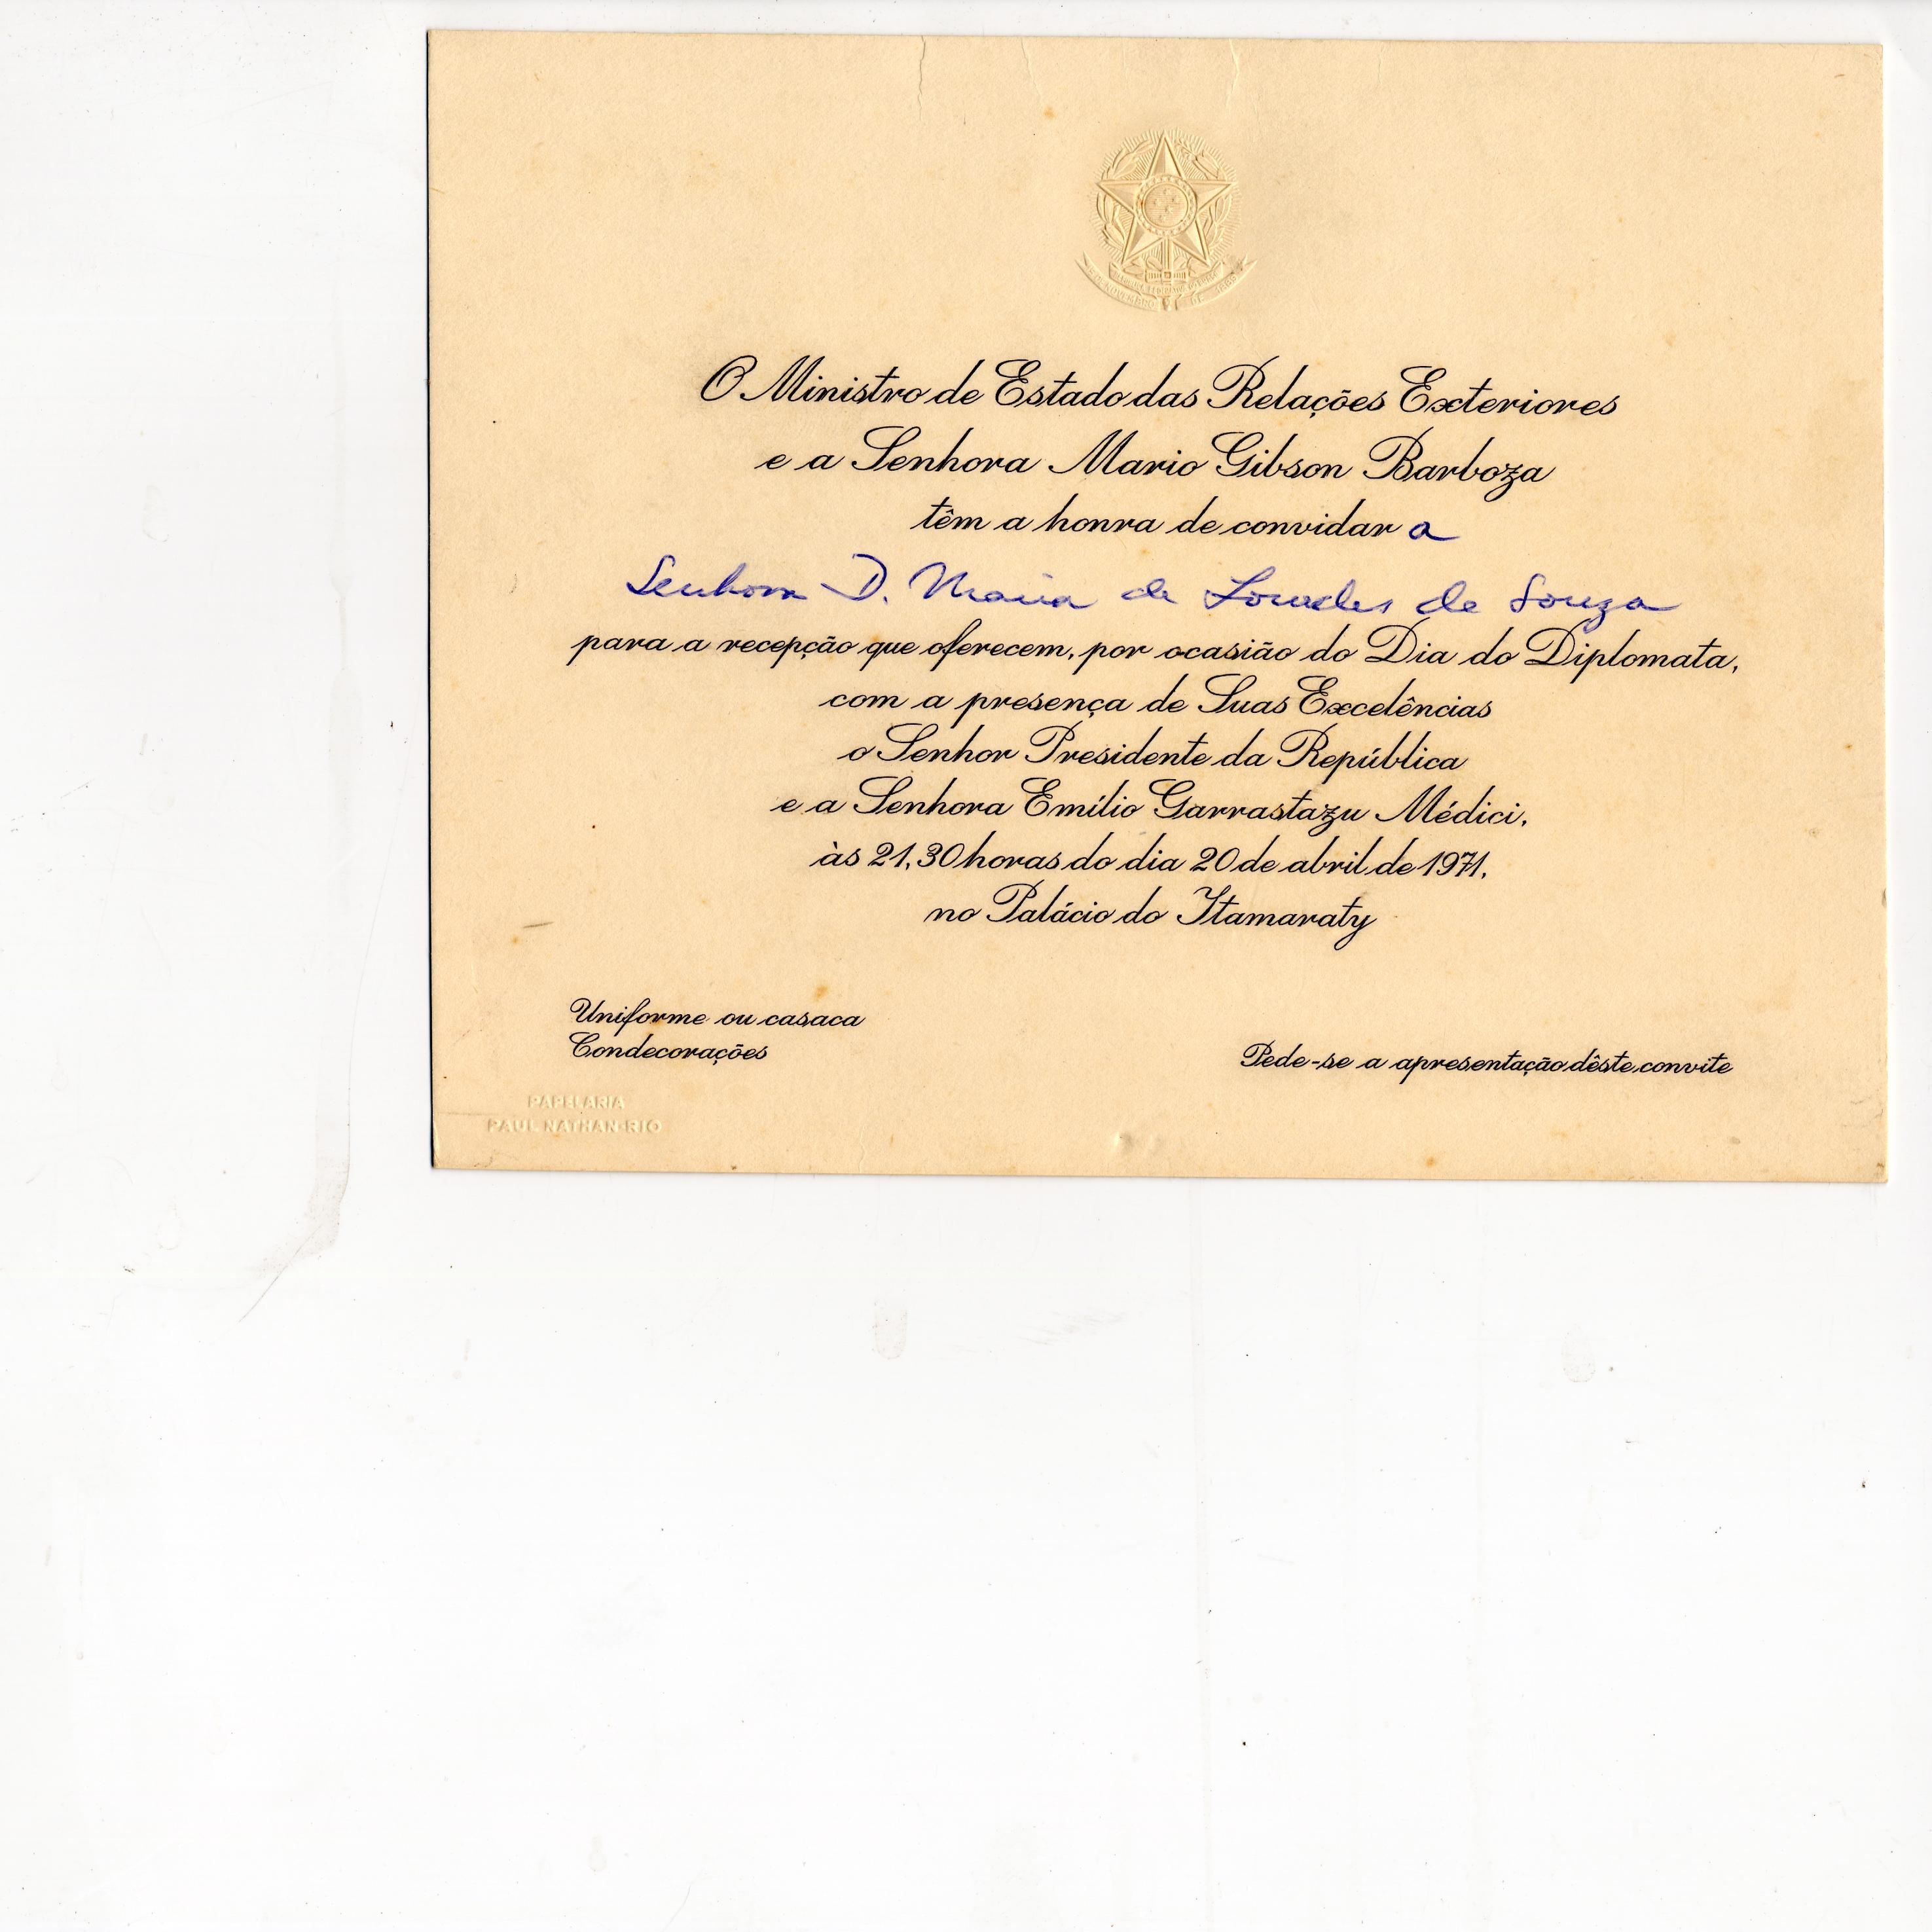 O Ministro de Estado das Relações Exteriores
e a Senhora Mario Gibson Barboza
têm a honra de convidar a
Senhora D. Maria de Lourdes de Souza
para a recepção que oferecem, por ocasião do Dia do Diplomata,
com a presença de Suas Excelências
o Senhor Presidente da República
e a Senhora Emílio Garrastazu Médici,
às 21,30 horas do dia 20 de abril de 1971,
no Palácio do Itamaraty
Uniforme ou casaca
Condecorações
Pede-se a apresentação dêste convite
PAPELARIA
PAUL NATHAN-RIO